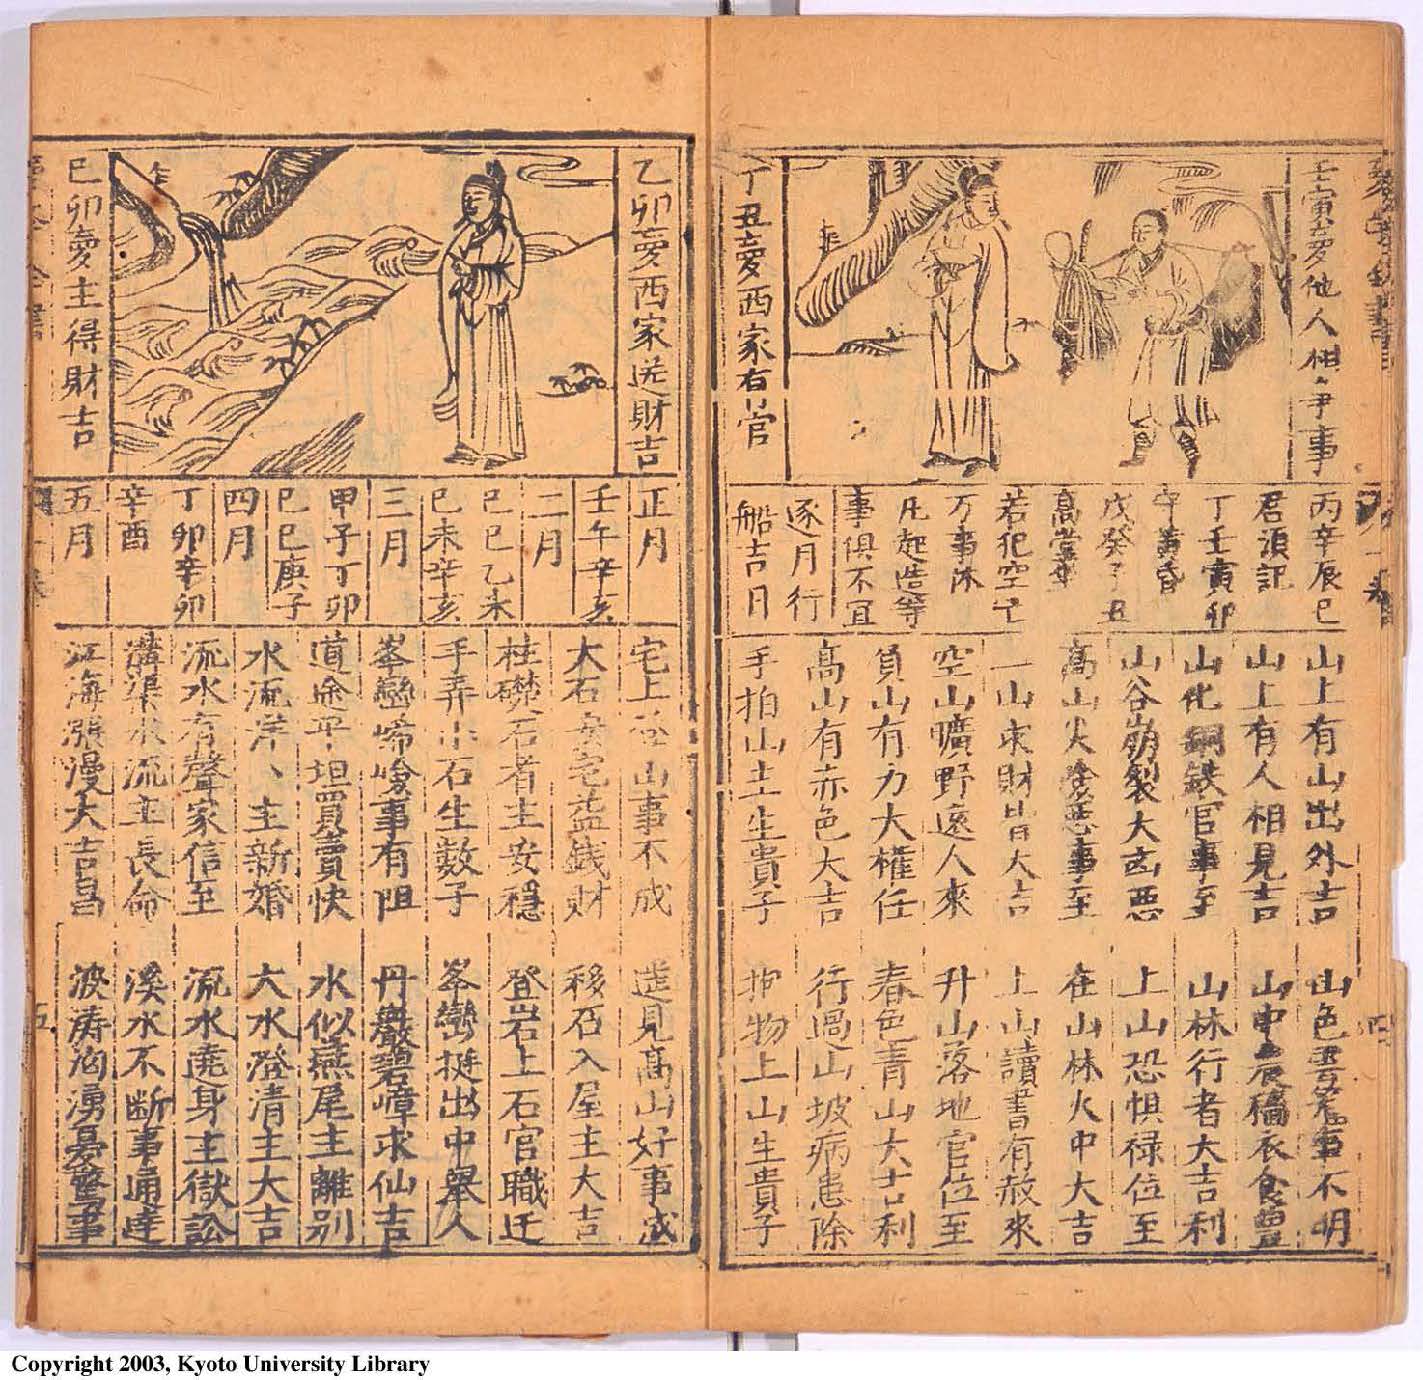 壬寅夢他人相爭事
丁丑夢西家有官
丙辛辰巳
君須記
丁壬寅卯
守黃昏
戊癸子丑
高堂坐
若犯空亡
万事休
凡起造等
事俱不宜
逐月行
船吉日
山上有山出外吉
山上有人相見吉
山化銅鉄官事至
山谷崩裂大凶惡
高山火 惡事至
一山求財皆大吉
空山曠野遠人來
負山有力大權任
高山有赤色大吉
手拍山土生貴子
山色 事不明
山中 穡衣食豊
山林行者大吉利
上山恐惧禄位至
在山林火中大吉
上山讀書有赦來
升山落地官位至
春色青山大吉利
行過山坡病患除
抱物上山生貴子
乙卯夢西家送財吉
巳卯夢主得財吉
正月
壬午辛亥
二月
己巳乙未
己未辛亥
三月
甲子丁卯
己巳庚子
四月
丁卯辛卯
辛酉
五月
宅上 山事不成
大石 宅益錢財
柱礎石者主安穩
手弄小石生數子
峯巒 嶮事有阻
道途平坦買賣快
水流洋、主新婚
流水有聲家信至
溝渠水流主長命
江海漲漫大吉昌
遥見高山好事成
移石入屋主大吉
登岩上石官職迁
峯巒挺出中舉人
丹巖碧嶂求仙吉
水似燕尾主離别
大水澄清主大吉
流水遶身主獄訟
溪水不断事通達
波涛洶湧憂驚事
五
Copyright 2003, Kyoto University Library